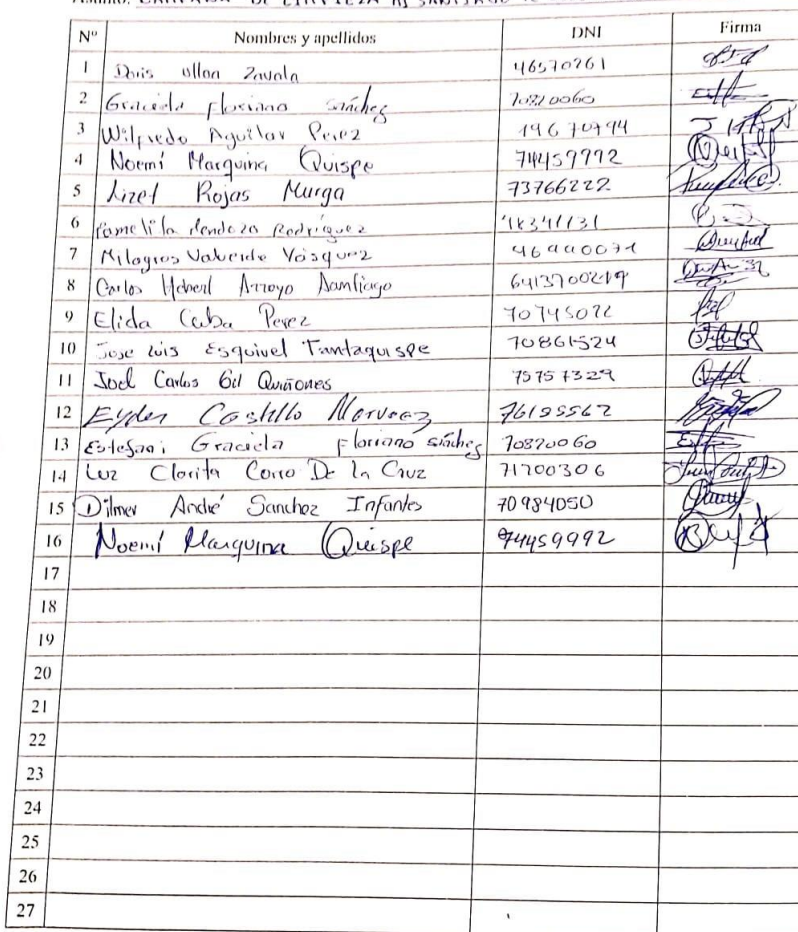 Nº Nombres y apellidos DNI Firma
1 Doris Ullon Zavala 46570261
2 Graciela Floriano Sánchez 70820060
3 Wilfredo Aguilar Perez 19670794
4 Noemí Marquina Quispe 74459992
5 Lizet Rojas Murga 73766222
6 Mendoza Rodríguez
7 Milagros Valverde Vásquez 46940071
8 Carlos Arroyo Santiago
9 Elida Caba Perez 70745022
10 Jose Luis Esquivel Tantaquispe 70861524
11 Joel Carlos Gil Quiñones 75757329
12 Eyder Castillo Narvaez 76195562
13 Estefani Graciela Floriano Sánchez 70820060
14 Luz Clorita Corro De la Cruz 71700306
15 Dilmer André Sanchez Infantes 70984050
16 Noemí Marquina Quispe 74459992
17
18
19
20
21
22
23
24
25
26
27